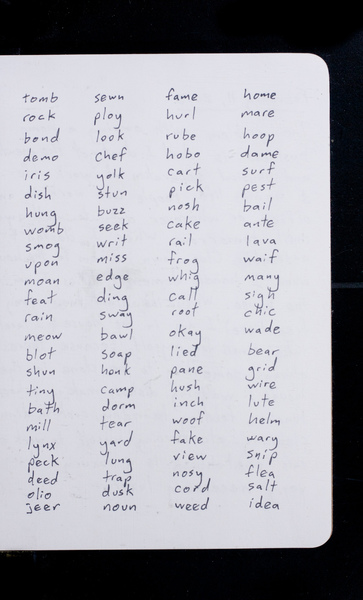 tomb sewn fame home
rock ploy hurl mare
bond look rube hoop
demo chef hobo dame
iris yolk cart surf
dish stun pick pest
hung buzz nosh bail
womb seek cake ante
smog writ rail lava
upon miss frog waif
moan edge whig many
feat ding call sigh
rain sway root chic
meow bawl okay wade
blot soap lied bear
shun honk pane grid
tiny camp hush wire
bath dorm inch lute
mill tear woof helm
lynx yard fake wary
peck lung view snip
deed trap nosy flea
olio dusk cord salt
jeer noun weed idea